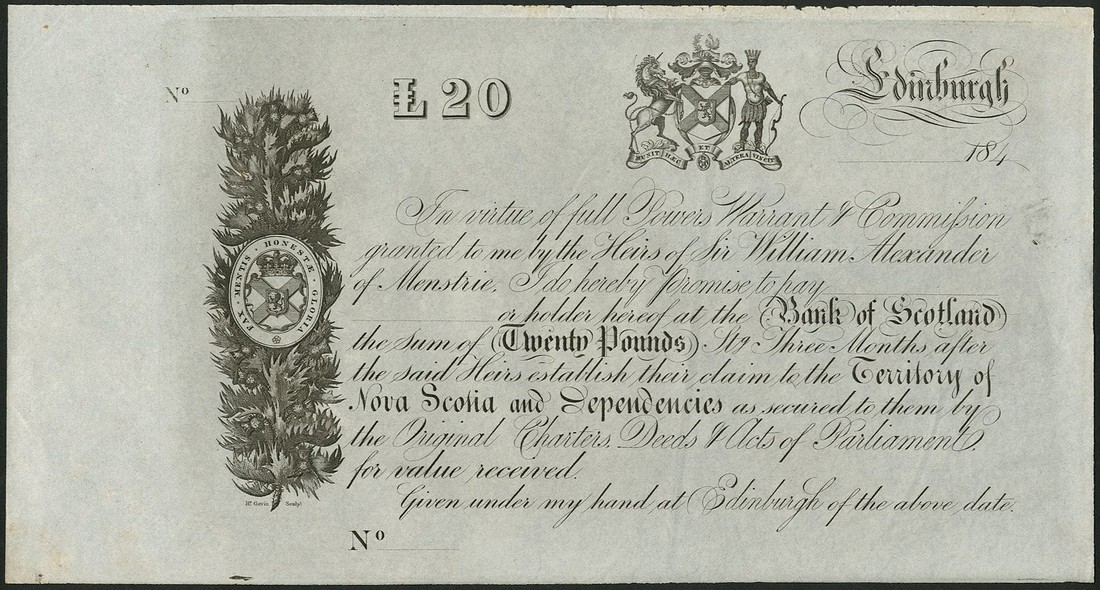 No
Ł 20
Edinburgh
184
MUNIT HÆC ET ALTERA VINCIT
In virtue of full Powers Warrant & Commiſsion
granted to me by the Heirs of Sir William Alexander
of Menstrie, I do hereby Promise to pay
or holder hereof at the Bank of Scotland
the Sum of Twenty Pounds Stg Three Months after
the said Heirs establish their claim to the Territory of
Nova Scotia and Dependencies as secured to them by
the Original Charters, Deeds & Acts of Parliament,
for value received.
Given under my hand at Edinburgh of the above date.
PAX MENTIS HONESTÆ GLORIA
Hr. Gavin Sculpt
No